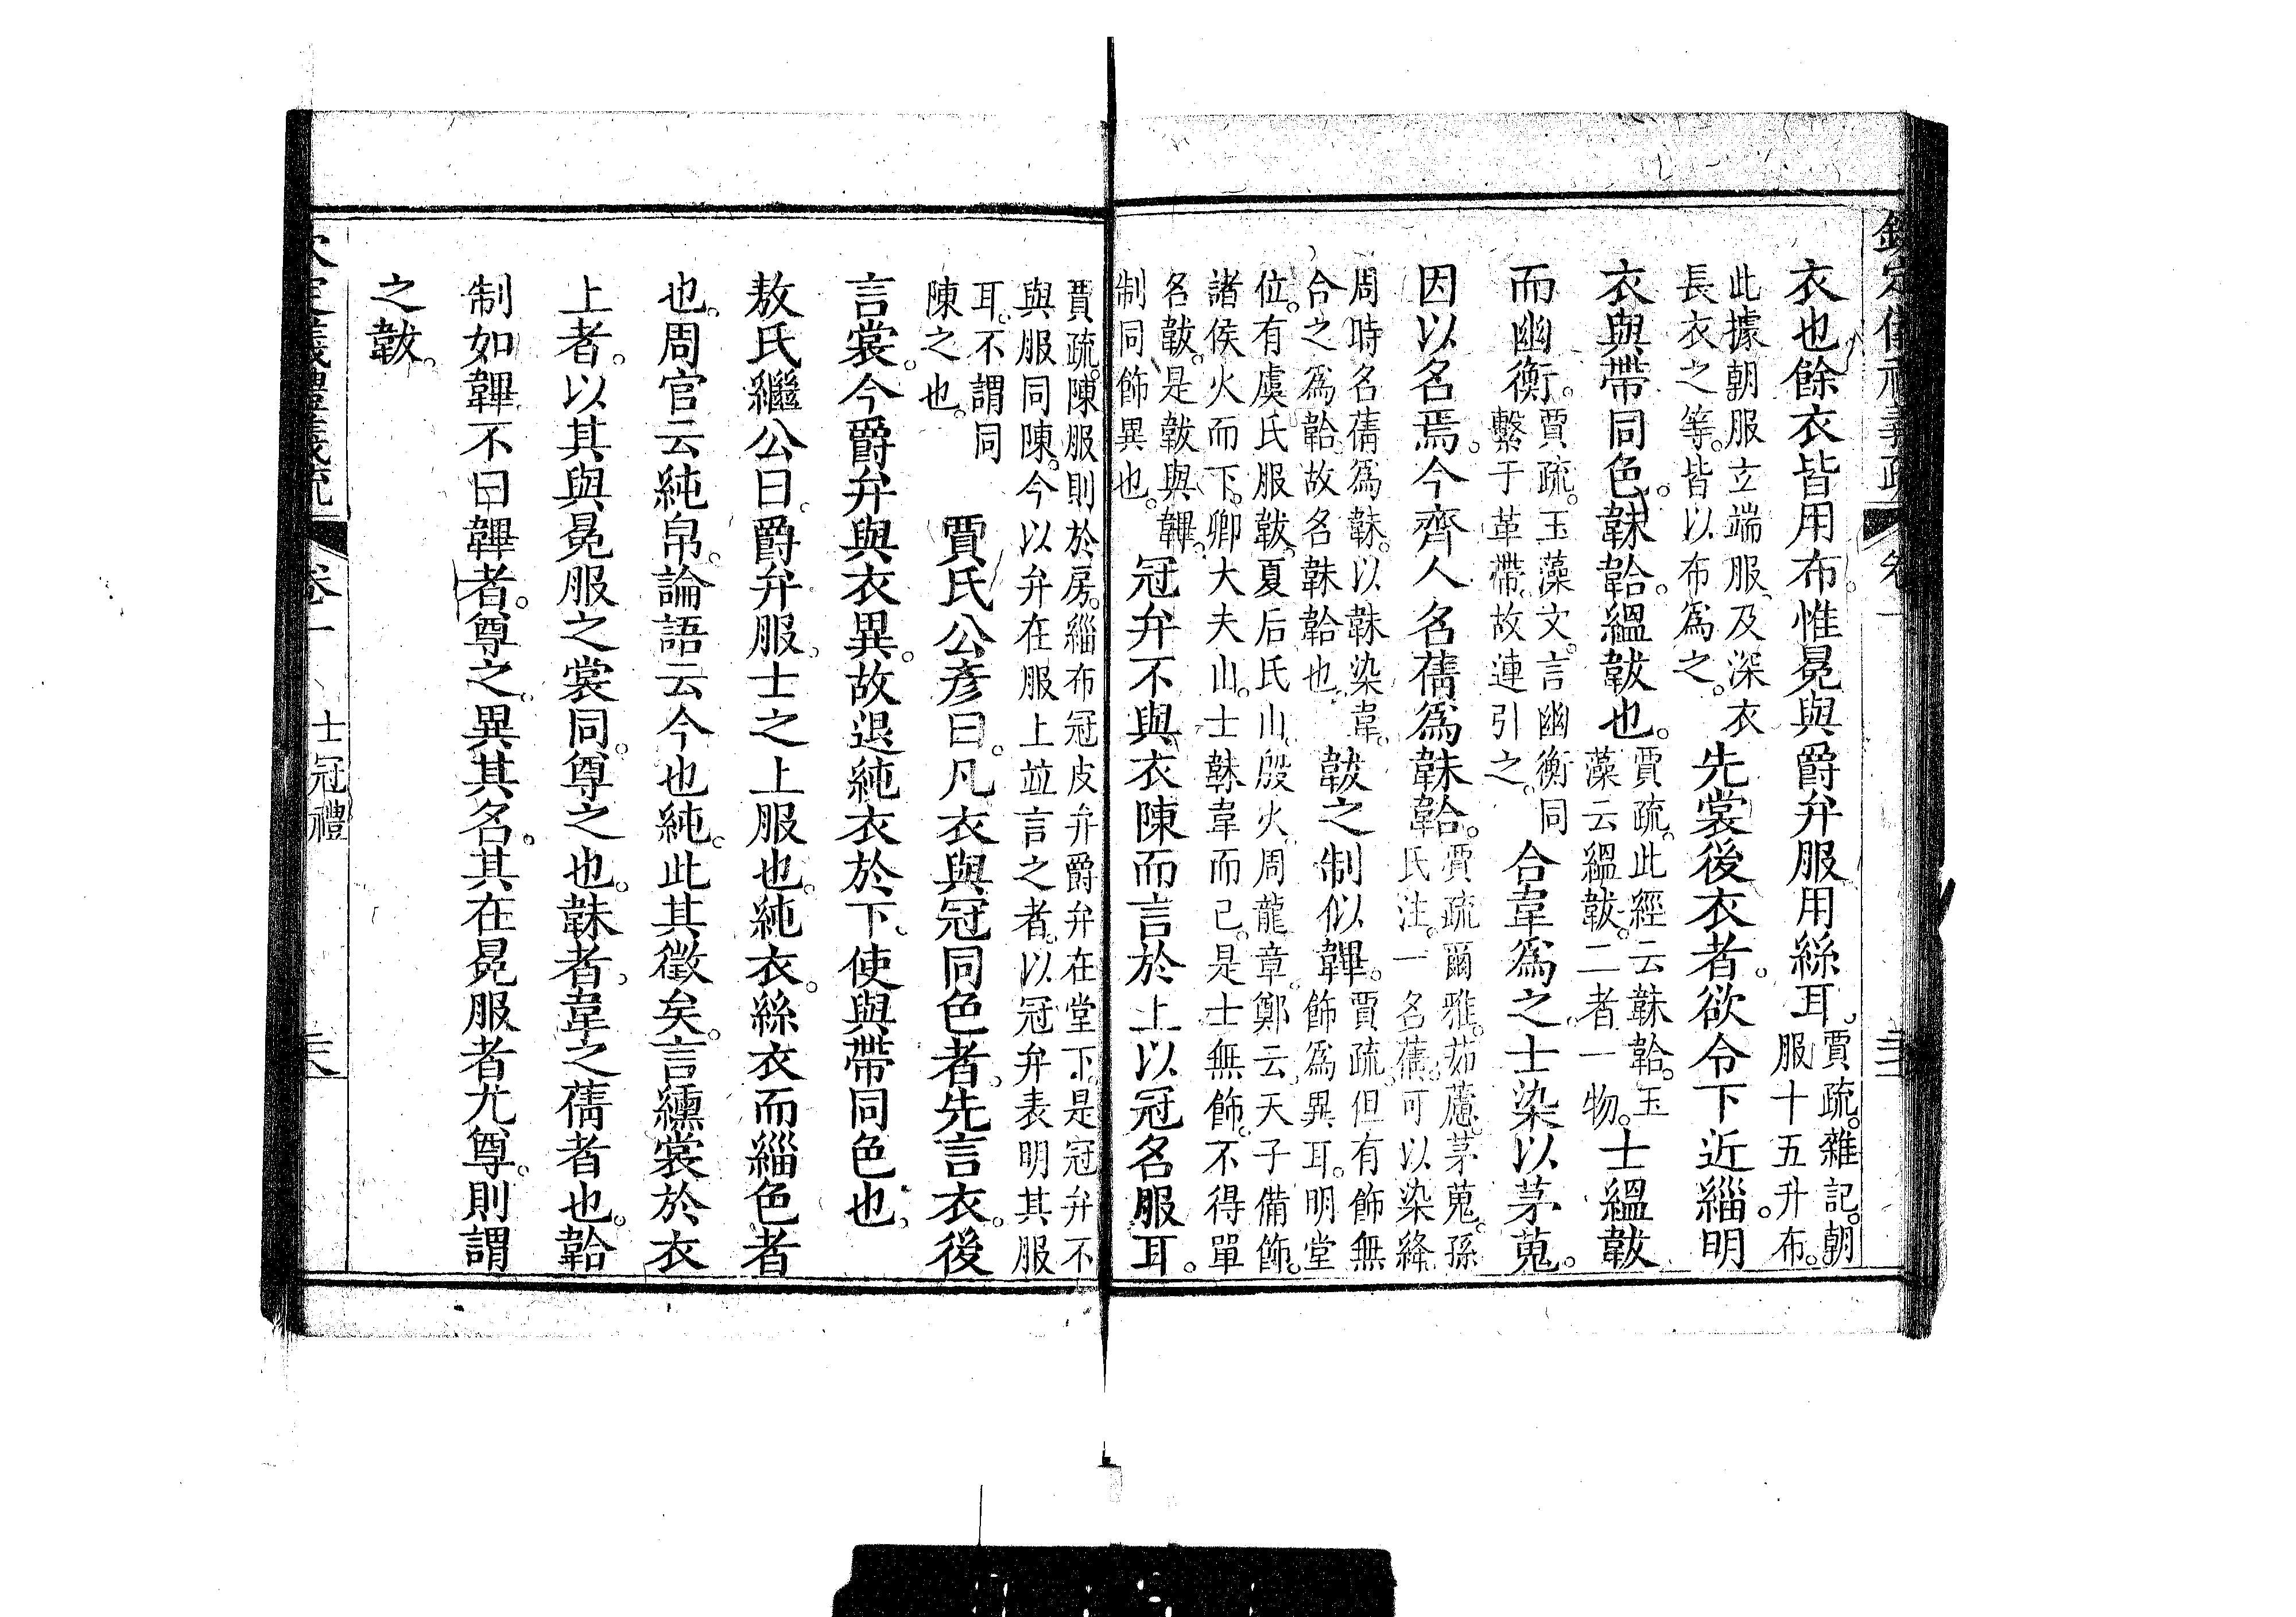 欽定儀禮義疏 卷一
衣也餘衣皆用布惟冕與爵弁服用絲耳賈疏雜記朝服十五升布
此據朝服玄端服及深衣長衣之等皆以布爲之先裳後衣者欲令下近緇明
衣與帶同色韎韐緼韍也賈疏此經云韎韐玉藻云緼韍二者一物士緼韍
而幽衡賈疏玉藻文言幽衡同繫于革帶故連引之合韋爲之士染以茅蒐
因以名焉今齊人名蒨爲韎韐賈疏爾雅茹藘茅蒐孫氏注一名蒨可以染絳
周時名蒨爲韎以韎染韋合之爲韐故名韎韐也韍之制似韠賈疏但有飾無飾爲異耳明堂
位有虞氏服韍夏后氏山殷火周龍章鄭云天子備飾諸侯火而下卿大夫山士韎韋而已是士無飾不得單
名韍是韍與韠制同飾異也冠弁不與衣陳而言於上以冠名服耳
賈疏陳服則於房緇布冠皮弁爵弁在堂下是冠弁不與服同陳今以弁在服上並言之者以冠弁表明其服
耳不謂同陳之也 賈氏公彥曰凡衣與冠同色者先言衣後
言裳今爵弁與衣異故退純衣於下使與帶同色也
敖氏繼公曰爵弁服士之上服也純衣絲衣而緇色者
也周官云純帛論語云今也純此其徵矣言纁裳於衣
上者以其與冕服之裳同尊之也韎者韋之蒨者也韐
制如韠不曰韠者尊之異其名其在冕服者尤尊則謂
之韍
欽定儀禮義疏 卷一 士冠禮